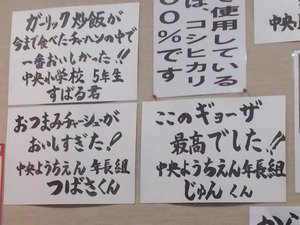 ガーリック炒飯が
今まで食べたチャーハンの中で
一番おいしかった!!
中央小学校 5年生
すばる君
使用している
は、コシヒカリ
００％です
おつまみチャーシューが
おいしすぎた!!
中央ようちえん 年長組
つばさくん
このギョーザ
最高でした!!
中央ようちえん年長組
じゅんくん